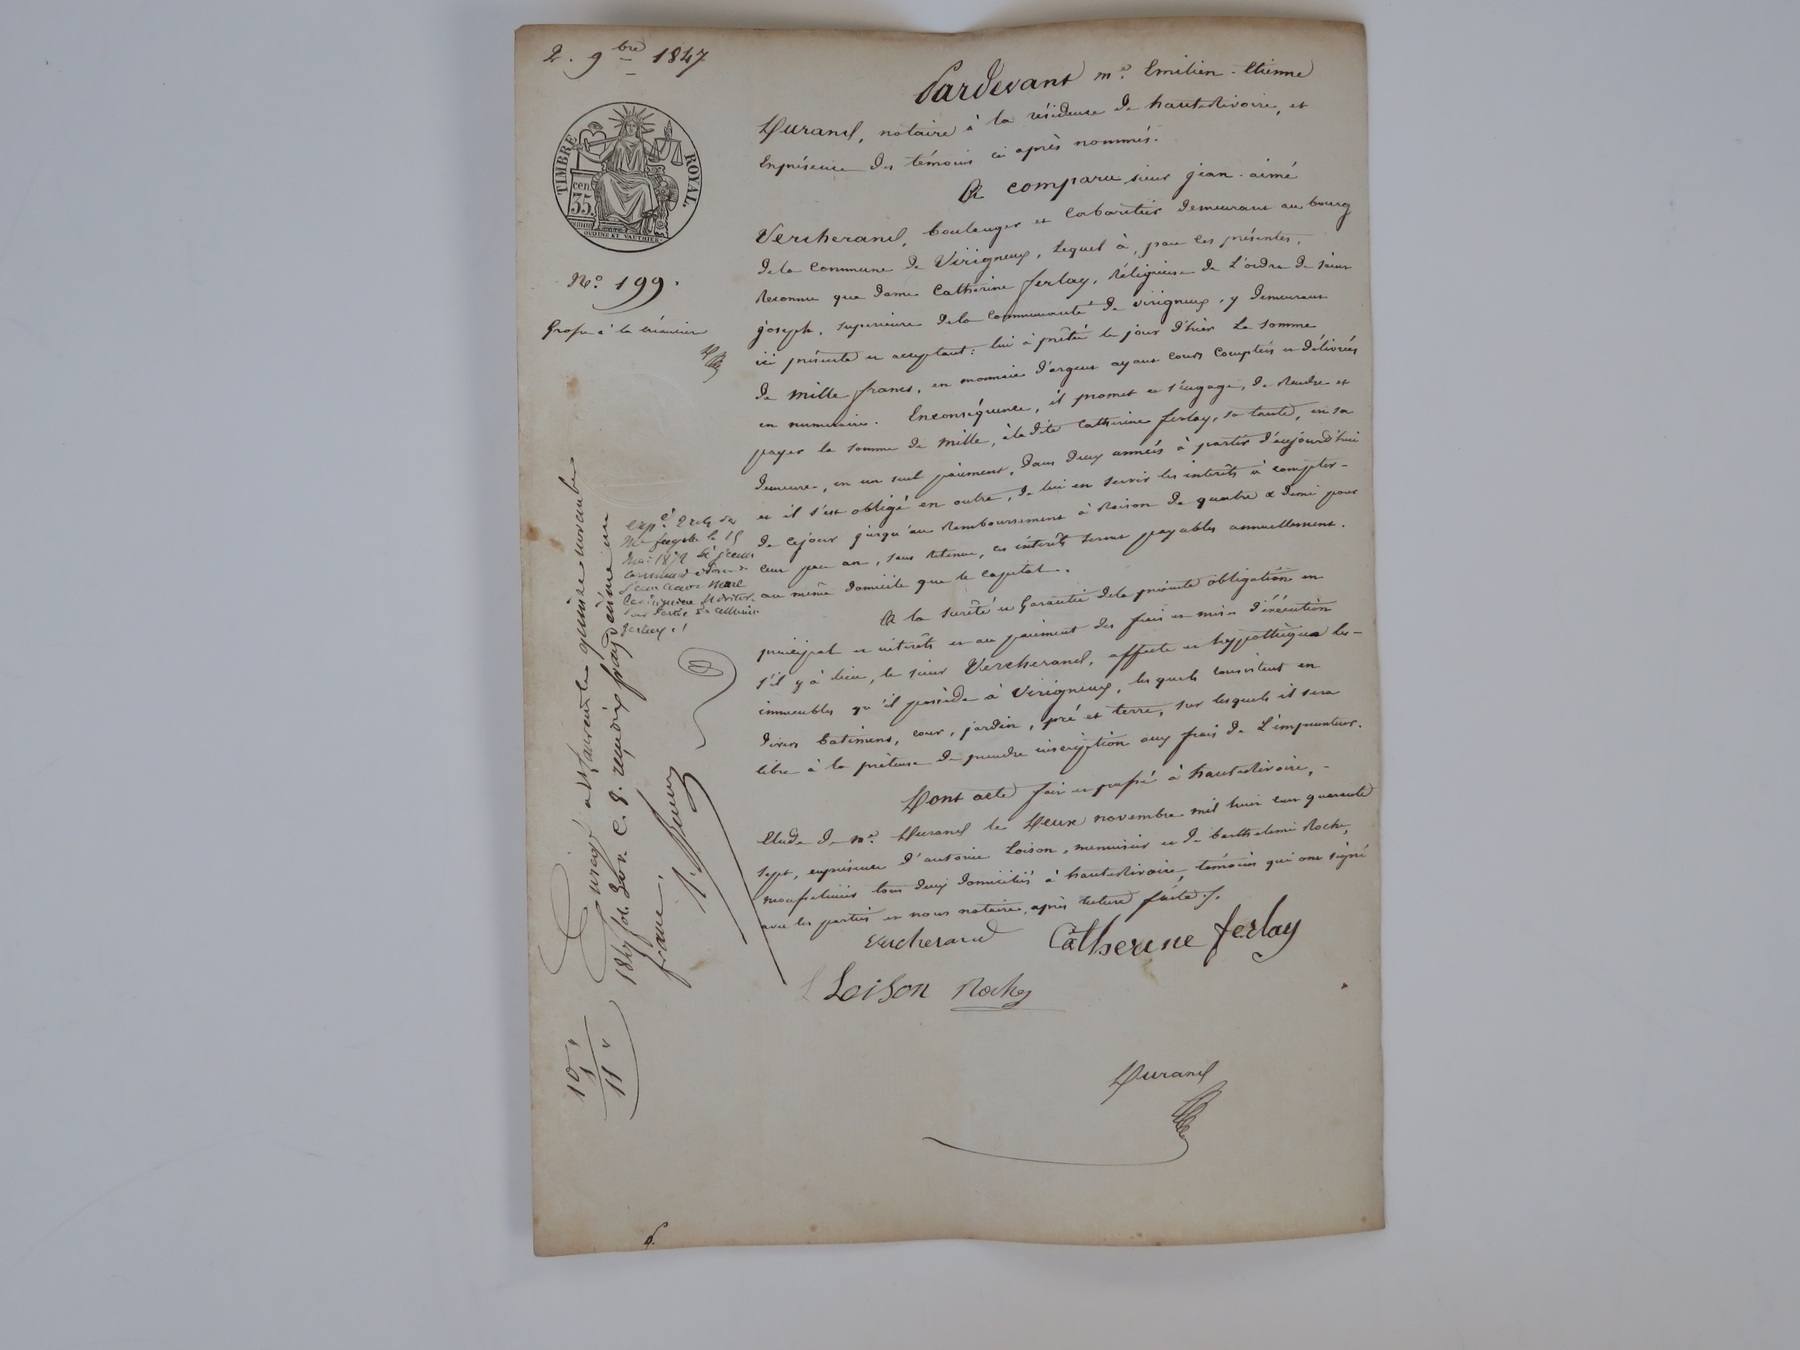 2. 9bre 1847
TIMBRE ROYAL
cen. 35.
OUDINE ET VAUTHIER
No. 199.
Grosse à la créancière
Pardevant me. Emilien-Etienne
Durand, notaire à la résidence de hauterivoire, et
Enprésence des témoins ci après nommés.
A comparu sieur jean-aimé
Vercherand, boulanger et Cabaretier demeurant au bourg
dela commune de Virigneux, lequel à, par ces présentes,
Reconnu que dame Catherine ferlay, Réligieuse de L'ordre de saint
joseph, supérieure dela Communauté de virigneux, y demeurant
ici présente et acceptant: lui à prêté le jour d'hier La somme
de Mille francs, en monnaie d'argent ayant cours Comptés et délivrés
en numéraire. Enconséquence, il promet et s'engage, de Rendre et
payer la somme de Mille, à ladite Catherine ferlay, sa tante, en sa
demeure, en un seul paiment, dans deux années à partir d'aujourd'hui
et il s'est obligé en outre, de lui en servir les interêts à compter-
de cejour jusqu'au Remboursement à Raison de quatre & demi pour
cent par an, sans Retenue, ces interêts seront payables annuellement.
au même domicile que le capital.
A la surêté et Garantie dela présente obligation en
principal et interêts et au paiment des frais et mise d'éxécution
s'il y à lieu, le sieur Vercherand, affecte et hypothèque les-
immeubles qu'il possède à Virigneux, lesquels consistent en
divers batimens, cour, jardin, pré et terre, sur lesquels il sera
libre à la prêteuse de prendre inscription aux frais de L'emprunteur.
Dont acte fait et passé à hauterivoire, -
Etude de me. Durand le Deux novembre mil huit cent quarante
sept, enprésence d'antoine Loison, menuisier et de barthelemi Roche,
tous deux domiciliés à hauterivoire, témoins qui ont signé
avec les parties et nous notaire, après lecture faite.
Vercherand Catherine ferlay
Loison Roche
Durand
exp. le 15
mai 1872
quinze novembre
1847 fol. 30 v. C. 8. reçu dix francs
franc.
10
1
11